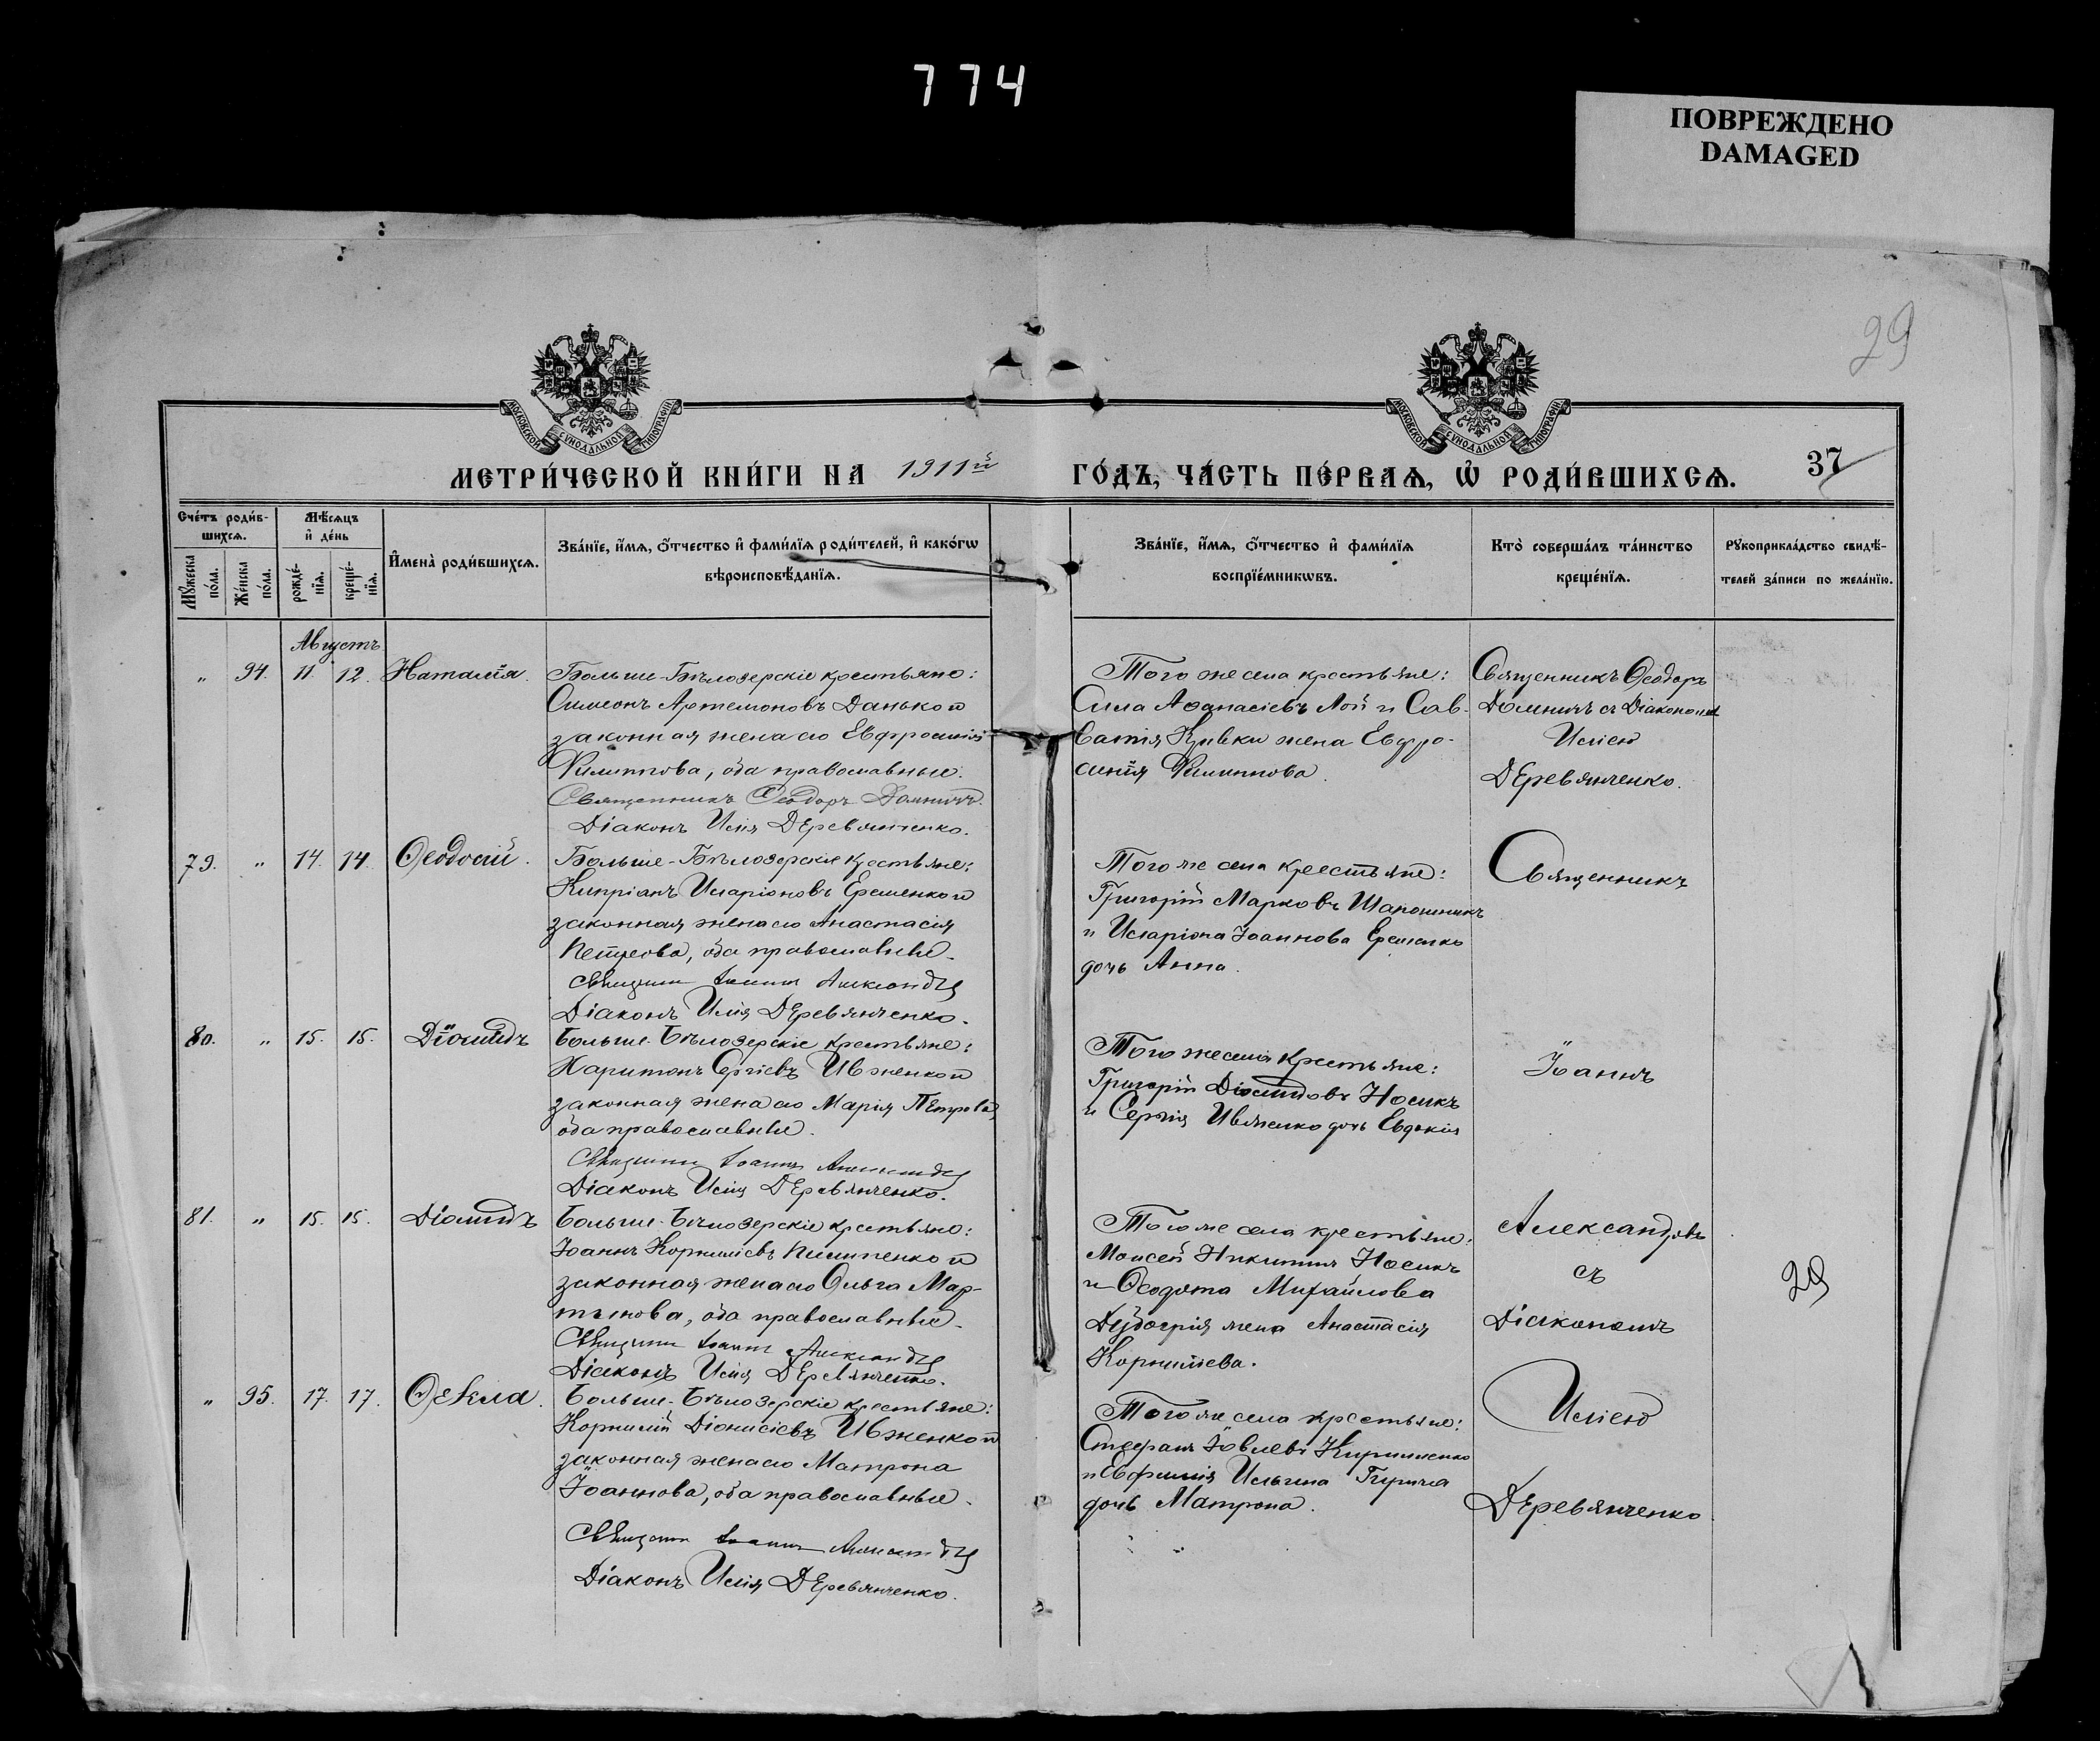 774
ПОВРЕЖДЕНО
DAMAGED
29
МОСКОВСКОЙ СѴНОДАЛЬНОЙ ТИПОГРАФІИ
МОСКОВСКОЙ СѴНОДАЛЬНОЙ ТИПОГРАФІИ
МЕТРИ́ЧЕСКОЙ КНИ́ГИ НА 1911й ГО́ДЪ, ЧА́СТЬ ПЕ́РВАѦ, Ѡ҆ РОДИ́ВШИХСѦ. 37
Сче́тъ роди́в-
шихсѧ.
Мѹ́жеска
по́ла.
Же́нска
по́ла.
Мѣ́сѧцъ
и҆ де́нь
рожде́-
нїѧ.
креще́-
нїѧ.
И҆мена̀ роди́вшихсѧ.
Зва́нїе, и҆́мѧ, ѻ҆́тчество и҆ фами́лїѧ роди́телей, и҆ како́гѡ
вѣроисповѣ́данїѧ.
Зва́нїе, и҆́мѧ, ѻ҆́тчество и҆ фами́лїѧ
воспрїе́мникѡвъ.
Кто̀ соверша́лъ та́инство
креще́нїѧ.
Рѹкоприкла́дство свидѣ́-
телей за́писи по жела́нїю.
Августъ
" 94. 11. 12. Наталія.
Больше-Бѣлозерскіе крестьяне:
Симеонъ Артемоновъ Данько и
законная жена его Евфросинія
Филиппова, оба православные.
Священникъ Ѳеодоръ Домничъ.
Діаконъ Илія Деревянченко.
Того же села крестьяне:
Сила Аѳанасіевъ Лой и Сав-
ватія Кривки жена Евфро-
синія Филиппова.
Священникъ Ѳеодоръ
Домничъ съ Діакономъ
Иліею
Деревянченко.
79. " 14. 14. Ѳеодосій.
Больше-Бѣлозерскіе крестьяне:
Кипріанъ Иларіоновъ Ересенко и
законная жена его Анастасія
Петрова, оба православные.
Іоаннъ Александровъ
Діаконъ Илія Деревянченко.
Того же села крестьяне:
Григорій Марковъ Шапошникъ
и Иларіона Іоаннова
дочь Анна.
Священникъ
80. " 15. 15. Діомидъ
Больше-Бѣлозерскіе крестьяне:
Харитонъ Сергіевъ Ивженко и
законная жена его Марія Петрова,
оба православные.
Іоаннъ Александровъ
Діаконъ Илія Деревянченко.
Того же села крестьяне:
Григорій Діомидовъ Носикъ
и Сергія Ивженко дочь Евдокія
Іоаннъ
81. " 15. 15. Діомидъ
Больше-Бѣлозерскіе крестьяне:
Іоаннъ Корниліевъ Пилипенко и
законная жена его Ольга Мар-
тинова, оба православные.
Іоаннъ Александровъ
Діаконъ Илія Деревянченко.
Того же села крестьяне:
Моисей Никитинъ Носикъ
и Ѳеодота Михайлова
жена Анастасія
Корниліева.
Александровъ
съ
Діакономъ
29
" 95. 17. 17. Ѳекла.
Больше-Бѣлозерскіе крестьяне:
Корнилій Діонисіевъ Ивженко и
законная жена его Матрона
Іоаннова, оба православные.
Іоаннъ Александровъ
Діаконъ Илія Деревянченко.
Того же села крестьяне:
Стефанъ Іовлевъ Кириленко
и Евфимія Ильина
дочь Матрона.
Иліею
Деревянченко